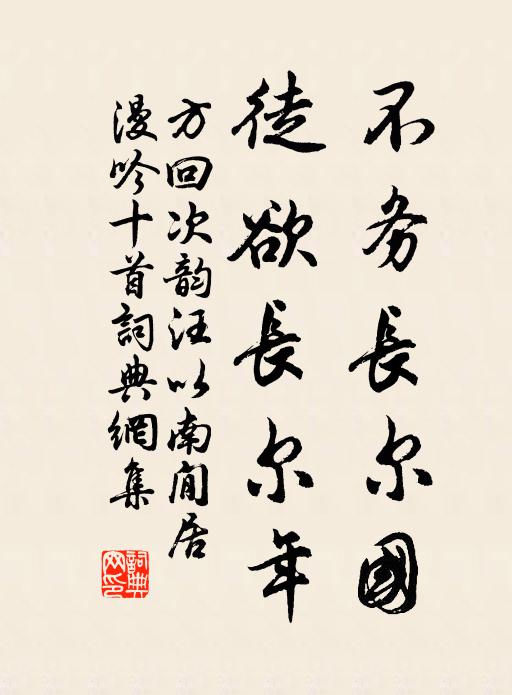 不务長尔國
徒欲長尔年
方回次韵汪以南閒居
漫吟十首詞典網集
詞典
网印